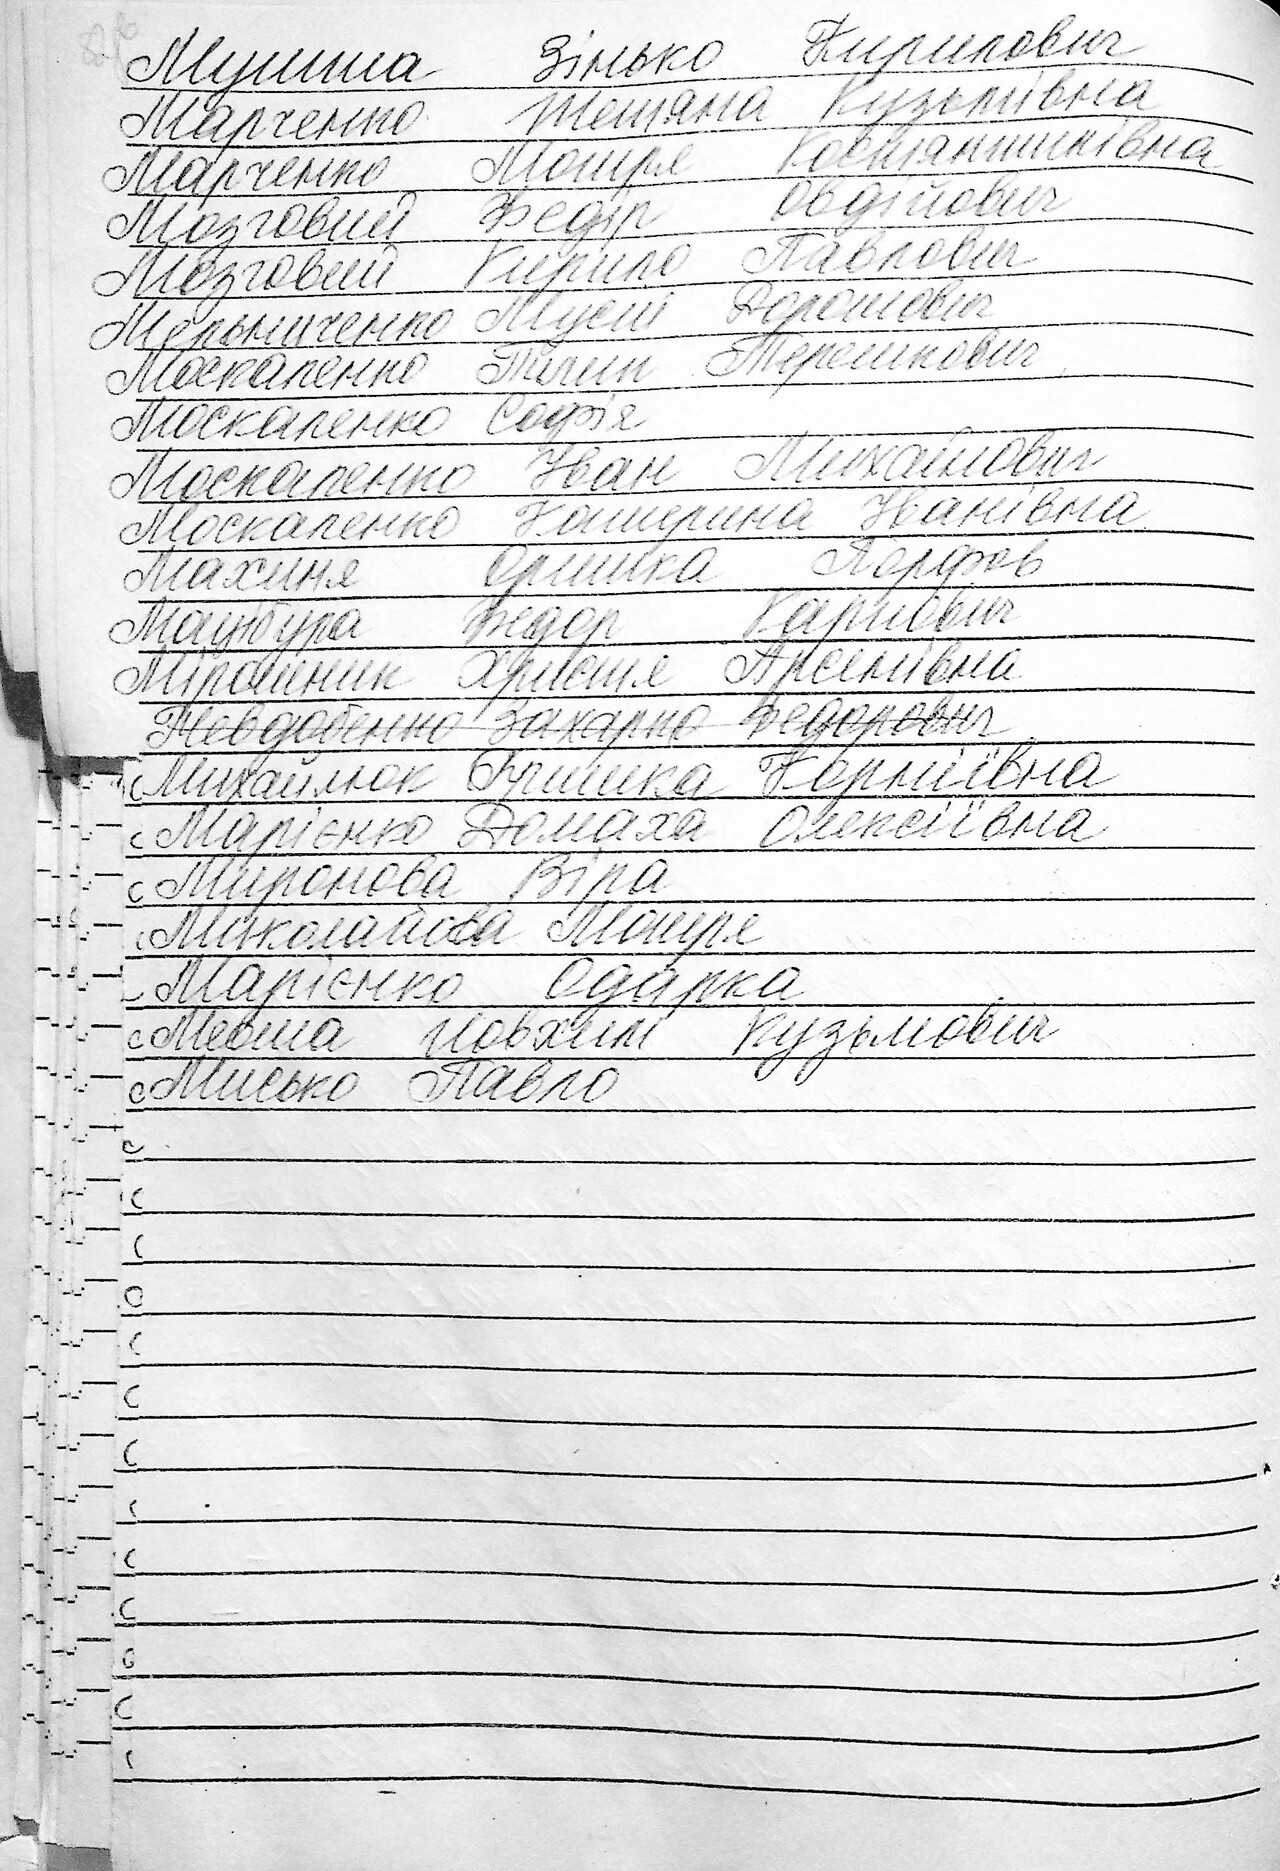 Мушта Зінько Кирилович
Марченко Тетяна Кузьмівна
Марченко Мотря Костянтинівна
Мозговий Федір Овдійович
Мозговий Кирило Павлович
Мельниченко Мусій Дорошович
Москаленко Терешкович
Москаленко Софія
Москаленко Іван Михайлович
Москаленко Катерина Іванівна
Махиня Оришка Парфов
Мацібура Федор Карпович
Мірошник Христя Арсеніївна
Невдобенко Захарко Федорович
Михайлюк Оришка Корніївна
Марієнко Домаха Олексіївна
Миронова Віра
Миколайова Мотря
Марієнко Одарка
Йовхим Кузьмович
Мисько Павло